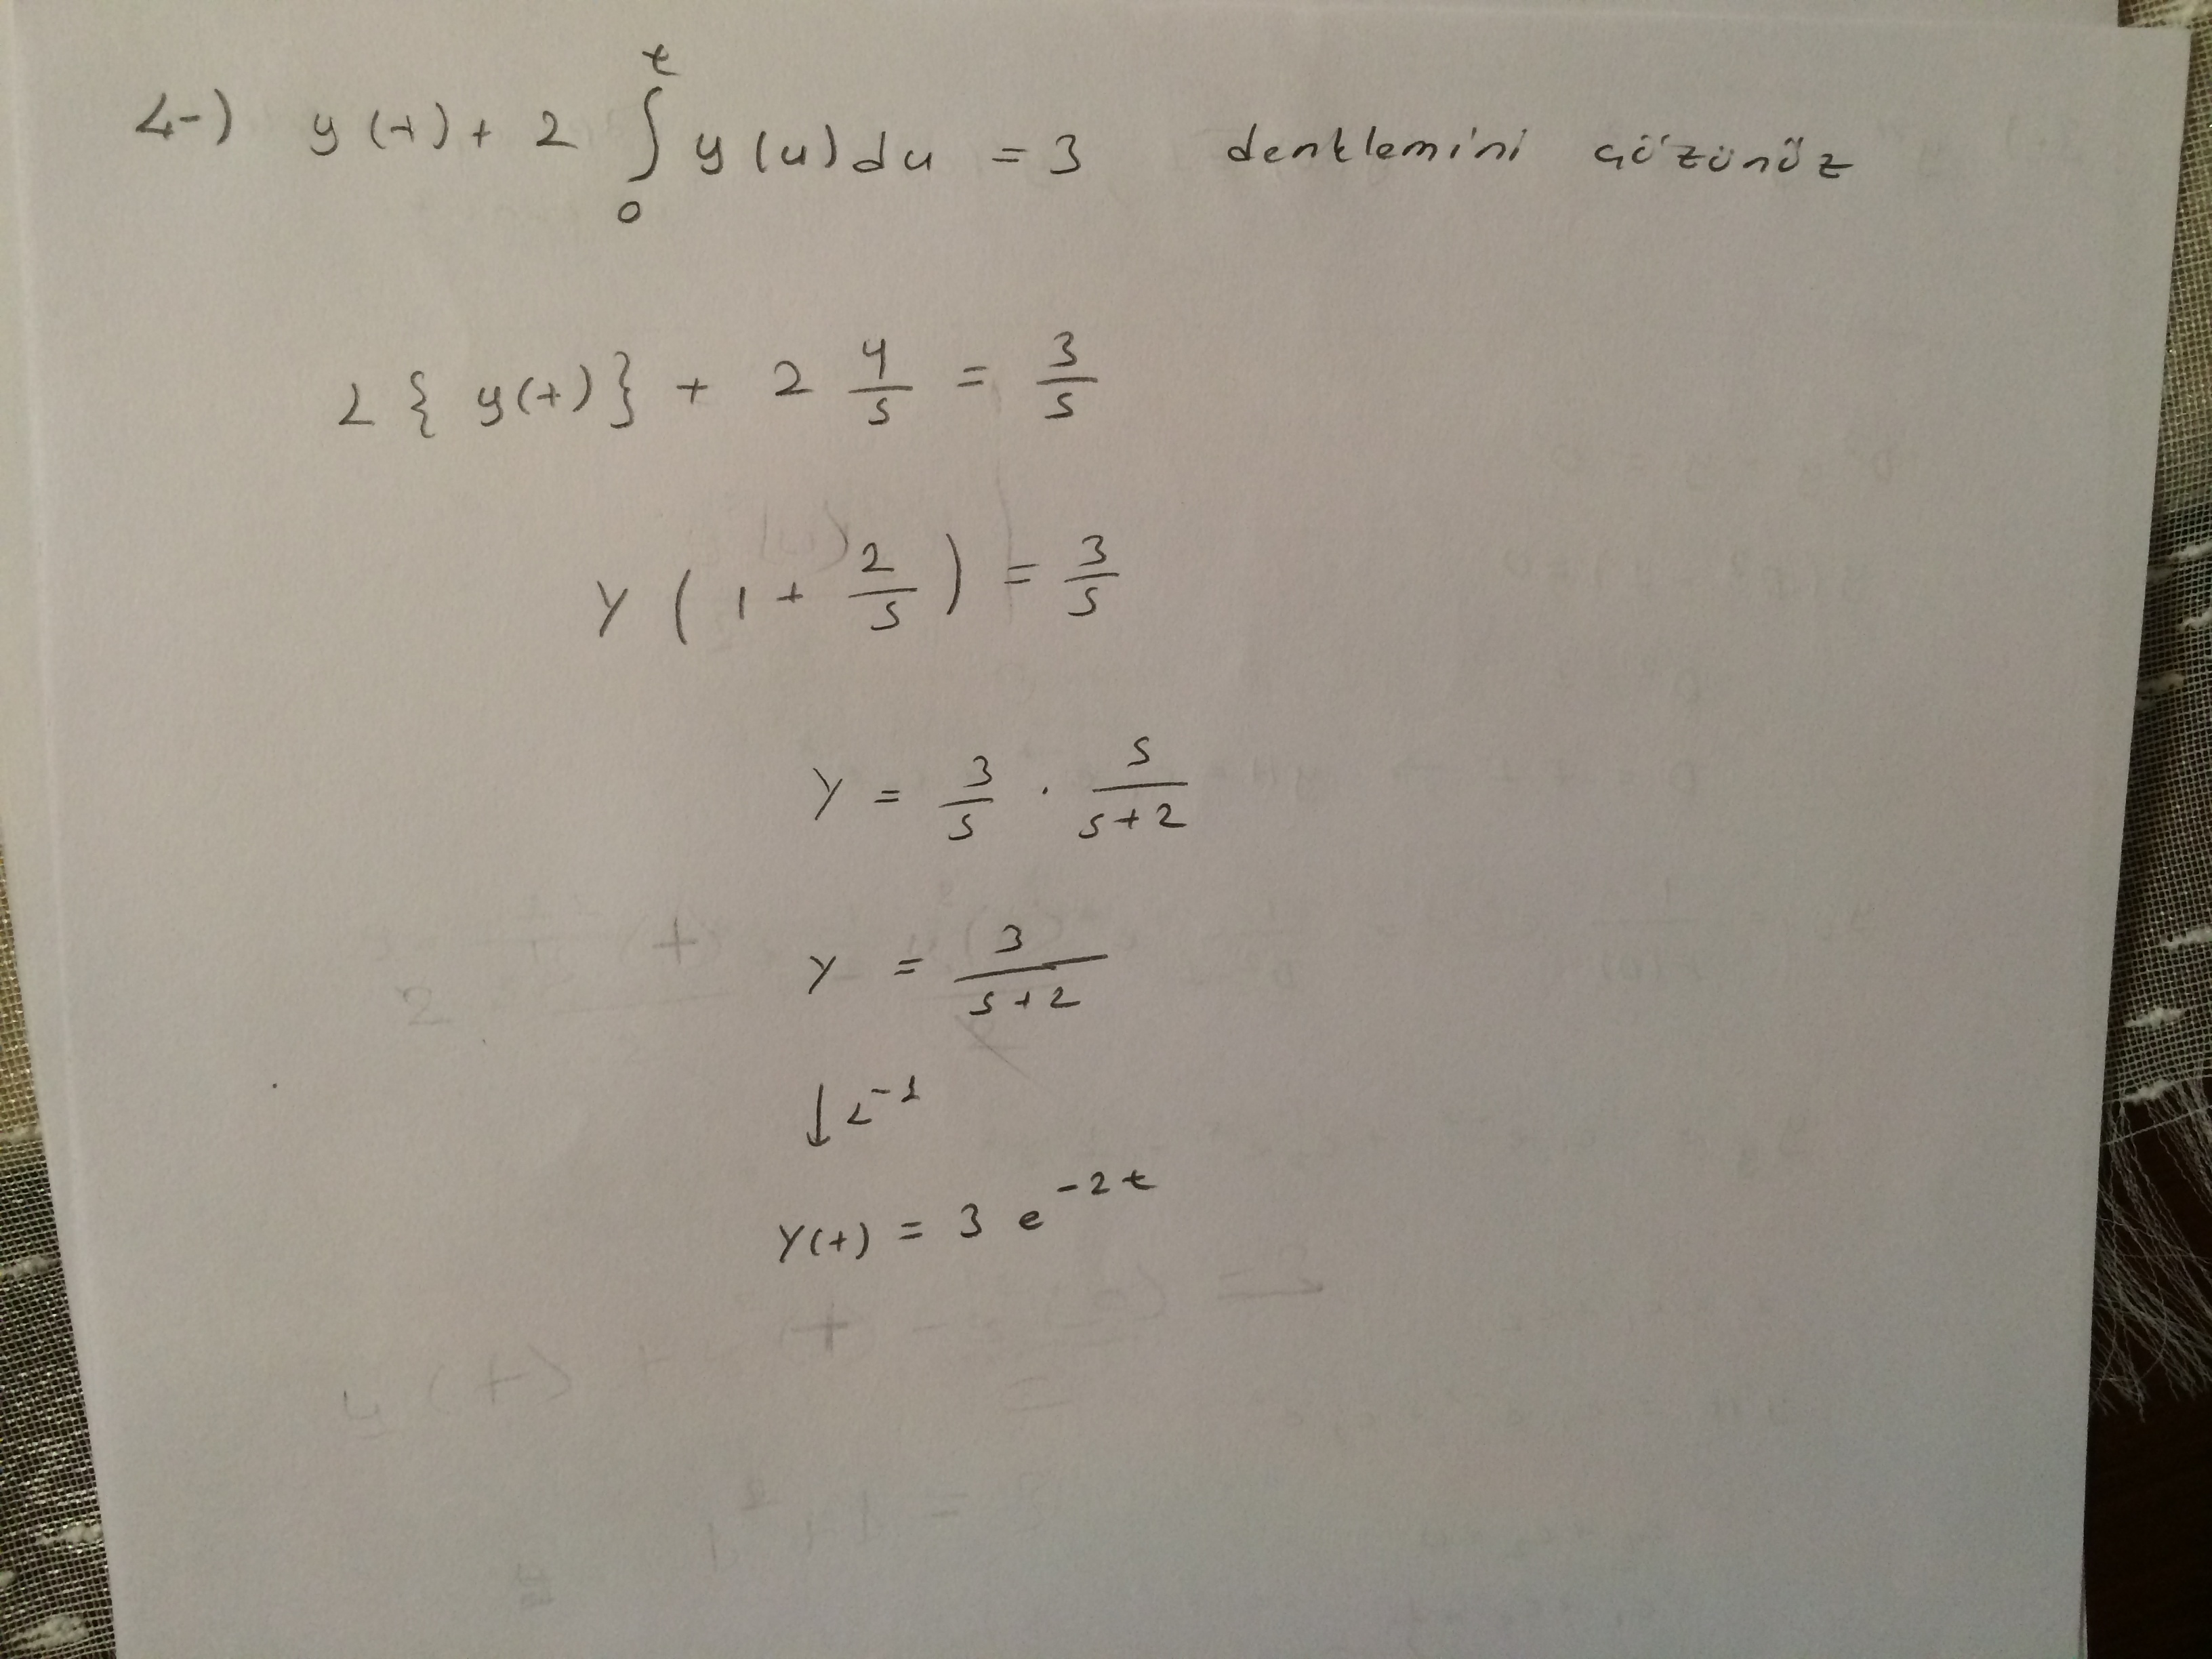 4-) y(t) + 2 ∫₀ᵗ y(u) du = 3 denklemini çözünüz
L { y(t) } + 2 Y/s = 3/s
Y ( 1 + 2/s ) = 3/s
Y = 3/s . s/(s+2)
Y = 3/(s+2)
↓ L⁻¹
Y(t) = 3 e^(-2t)